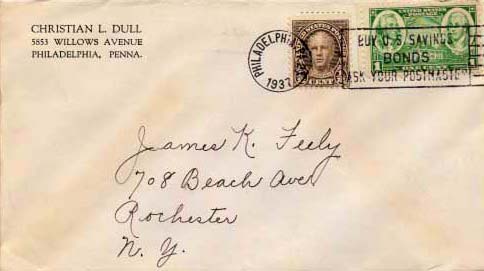 CHRISTIAN L. DULL
5853 WILLOWS AVENUE
PHILADELPHIA, PENNA.
PHILADELPHIA
1937
BUY U.S. SAVINGS
BONDS
ASK YOUR POSTMASTER
James K. Feely
708 Beach Ave
Rochester
N. Y.